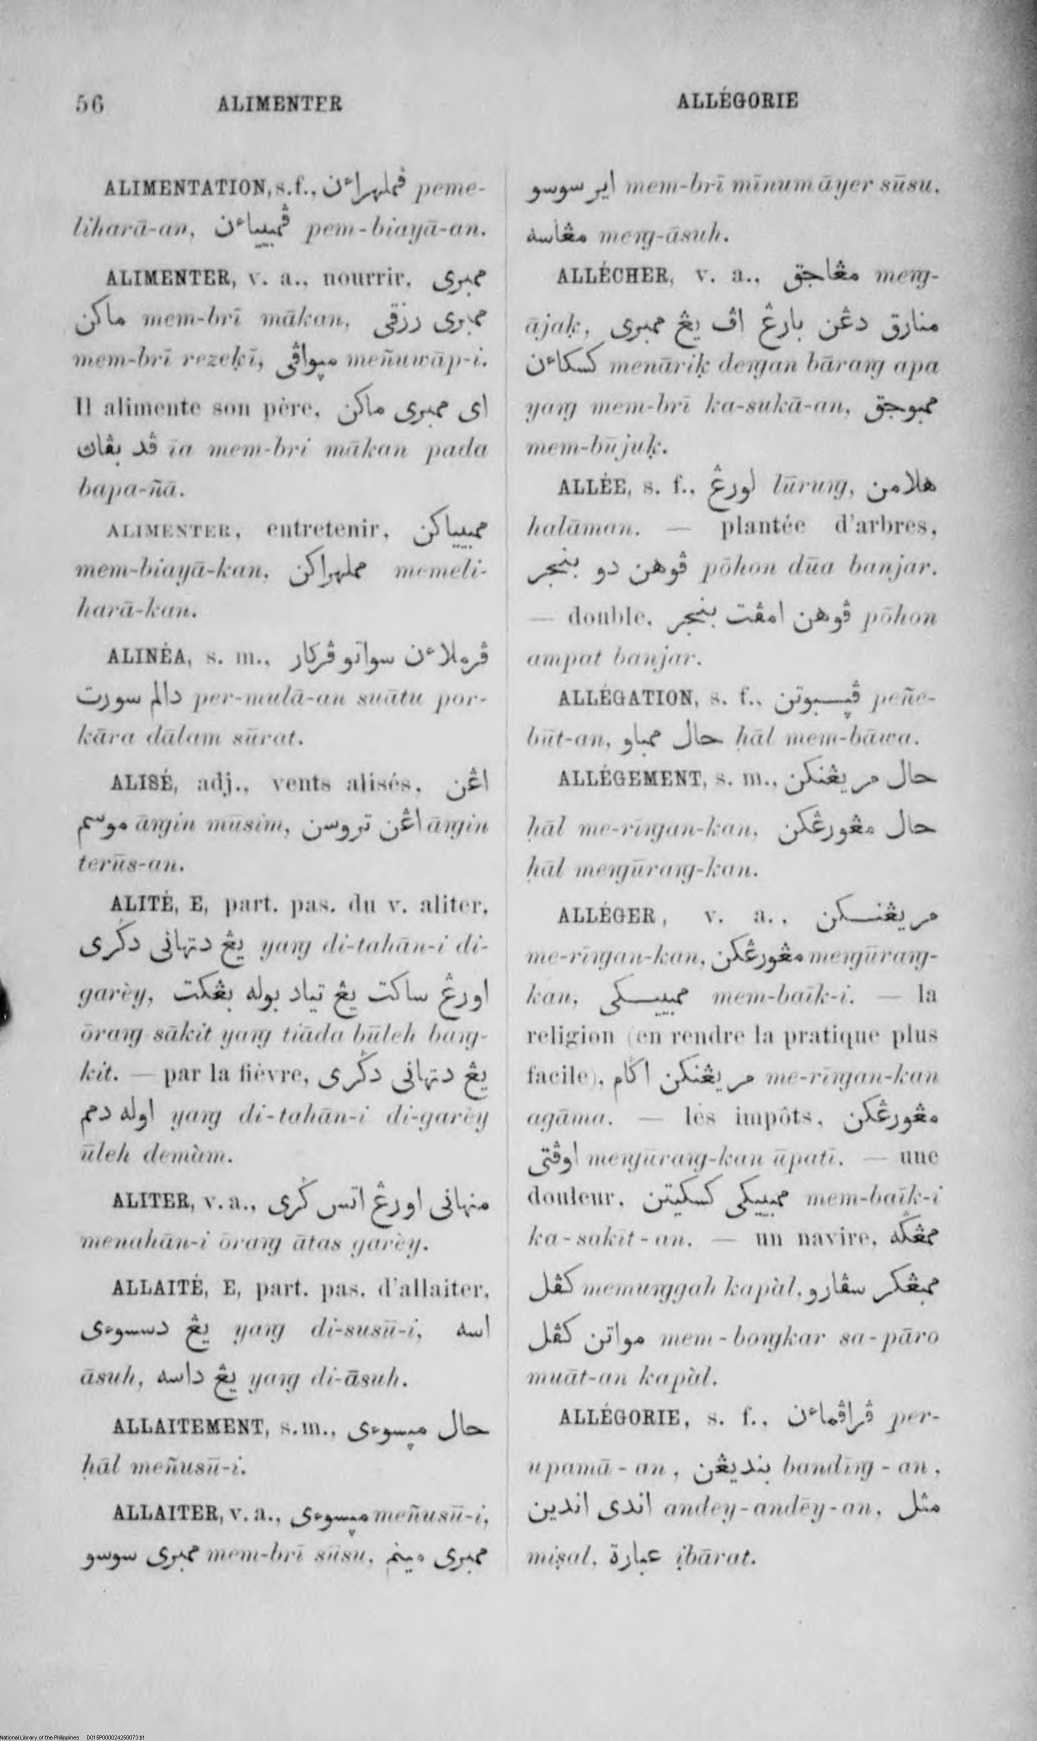 56 ALIMENTER ALLÉGORIE
ALIMENTATION, s. f., ڤملهراءن peme-
liharā-an, ڤمبياءن pem-biayā-an.
ALIMENTER, v. a., nourrir, ممبري
ماكن mem-brī mākan, ممبري رزقي
mem-brī rezeḳī, مپواڤي meñuwāp-i.
Il alimente son père, اي ممبري ماكن
ڤد بڤاڽ īa mem-bri mākan pada
bapa-ñā.
ALIMENTER, entretenir, ممبياكن
mem-biayā-kan, مملهراكن memeli-
harā-kan.
ALINÉA, s. m., ڤرملاءن سواتو ڤركار
دالم سورت per-mulā-an suātu per-
kāra dālam sūrat.
ALISÉ, adj., vents alisés, اڠن
موسم āngin mūsim, اڠن تروسن āngin
terūs-an.
ALITÉ, E, part. pas. du v. aliter,
يڠ دتهاني دڬري yang di-tahān-i di-
garèy, اورڠ ساكت يڠ تياد بوله بڠكت
ōrang sākit yang tiāda būleh bang-
kit. — par la fièvre, يڠ دتهاني دڬري
اوله دمم yang di-tahān-i di-garèy
ūleh demàm.
ALITER, v. a., منهاني اورڠ اتس ڬري
menahān-i ōrang ātas garèy.
ALLAITÉ, E, part. pas. d'allaiter,
يڠ دسسوءي yang di-susū-i, اسه
āsuh, يڠ داسه yang di-āsuh.
ALLAITEMENT, s. m., حال مپسوءي
ḥāl meñusū-i.
ALLAITER, v. a., مپسوءي meñusū-i,
ممبري سوسو mem-brī sūsu, ممبري مينم
اير سوسو mem-brī mīnum āyer sūsu,
مڠاسه meng-āsuh.
ALLÉCHER, v. a., مڠاجق meng-
ājaḳ, منارق دڠن بارڠ اڤ يڠ ممبري
كسكاءن menāriḳ dengan bārang apa
yang mem-brī ka-sukā-an, ممبوجق
mem-būjuḳ.
ALLÉE, s. f., لورڠ lūrung, هلامن
halāman. — plantée d'arbres,
ڤوهن دو بنجر pōhon dūa banjar.
— double, ڤوهن امڤت بنجر pōhon
ampat banjar.
ALLÉGATION, s. f., ڤپبوتن peñe-
būt-an, حال ممباو ḥāl mem-bāwa.
ALLÉGEMENT, s. m., حال مريڠنكن
ḥāl me-rīngan-kan, حال مڠورڠكن
ḥāl mengūrang-kan.
ALLÉGER, v. a., مريڠنكن
me-rīngan-kan, مڠورڠكن mengūrang-
kan, ممبيكي mem-baīk-i. — la
religion (en rendre la pratique plus
facile), مريڠنكن اڬام me-rīngan-kan
agāma. — les impôts, مڠورڠكن
اوڤتي mengūrang-kan ūpatī. — une
douleur, ممبيكي كسكيتن mem-baīk-i
ka-sakīt-an. — un navire, ممڠڬه
كڤل memunggah kapàl, ممبڠكر سڤارو
مواتن كڤل mem-bongkar sa-pāro
muāt-an kapàl.
ALLÉGORIE, s. f., ڤراڤماءن per-
upamā-an, بنديڠن bandīng-an,
اندي اندين andey-andēy-an, مثل
miṣal, عبارة ibārat.